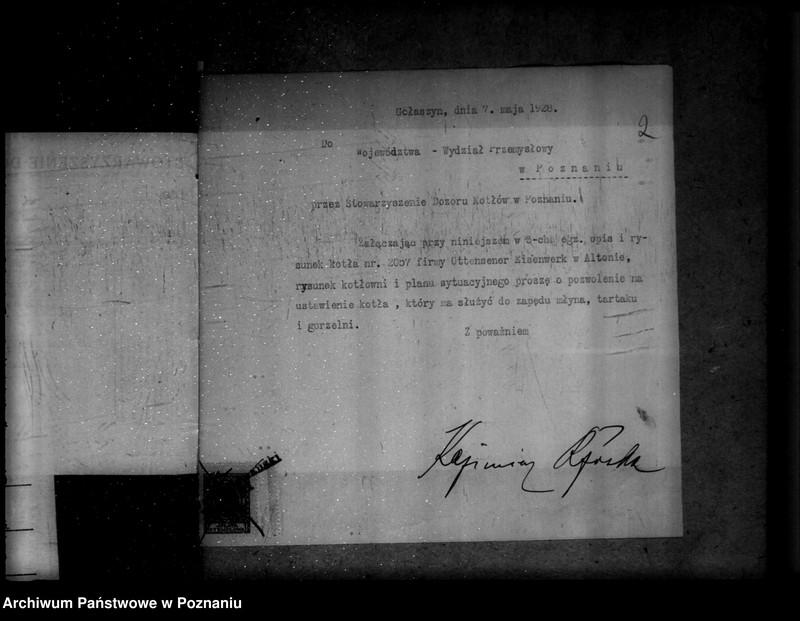 Gołaszyn, dnia 7. maja 1928.
2
Do
Województwa - Wydział Przemysłowy
w Poznaniu
przez Stowarzyszenie Dozoru Kotłów w Poznaniu.
Załączając przy niniejszem w 3-ch egz. opis i ry-
sunek kotła nr. 2057 firmy Ottensener Eisenwerk w Altonie,
rysunek kotłowni i planu sytuacyjnego proszę o pozwolenie na
ustawienie kotła , który ma służyć do zapędu młyna, tartaku
i gorzelni.
Z poważniem
Kazimierz
Archiwum Państwowe w Poznaniu